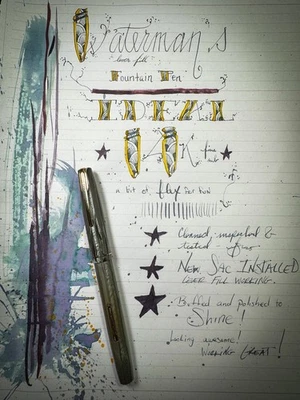 Waterman's
lever fill
Fountain Pen
IDEAL
fine
a bit of flex in her
Cleaned, inspected &
tested
New Sac INSTALLED
LEVER FILL WORKING.
Buffed and polished to
Shine!
Looking awesome!
WORKING GREAT!